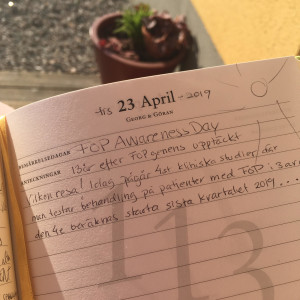 -tis 23 April -2019
GEORG & GÖRAN
BEMÄRKELSEDAGAR FOP Awareness Day
ANTECKNINGAR 13 år efter FOP genens upptäckt
Vilken resa! Idag pågår 4st kliniska studier där
man testar behandling på patienter med FOP i 3 av
den 4e beräknas starta sista kvartalet 2019....
113